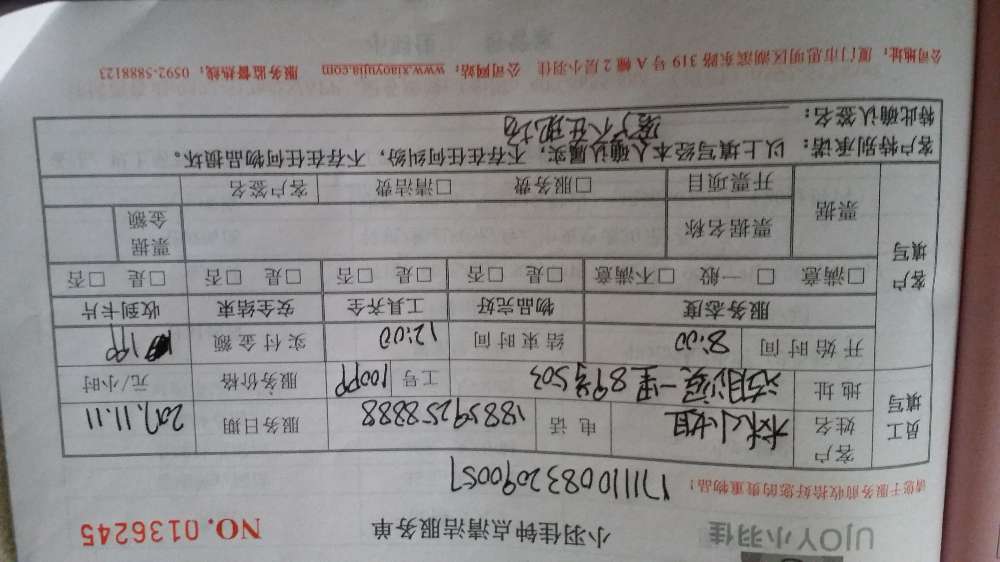 UJOY小羽佳 小羽佳钟点清洁服务单 NO.0136245
请您于服务前收拾好您的贵重物品! 1711100832090057
员工填写 客户姓名 林小姐 电话 18859258888 服务日期 2017.11.11
地址 湖滨一里89号503 工号 服务价格 元/小时
开始时间 8:00 结束时间 12:00 实付金额
客户填写 服务态度 物品完好 工具齐全 安全结束 收到卡片
□满意 □一般 □不满意 □是 □否 □是 □否 □是 □否 □是 □否
票据 票据名称 票据金额
开票项目 □服务费 □清洁费 客户签名
客户特别承诺: 以上填写经本人确认属实,不存在任何纠纷,不存在任何物品损坏。
特此确认签名: 客户不在现场
公司地址:厦门市思明区湖滨东路319号A幢2层小羽佳 公司网站:www.xiaoyujia.com 服务监督热线:0592-5888123